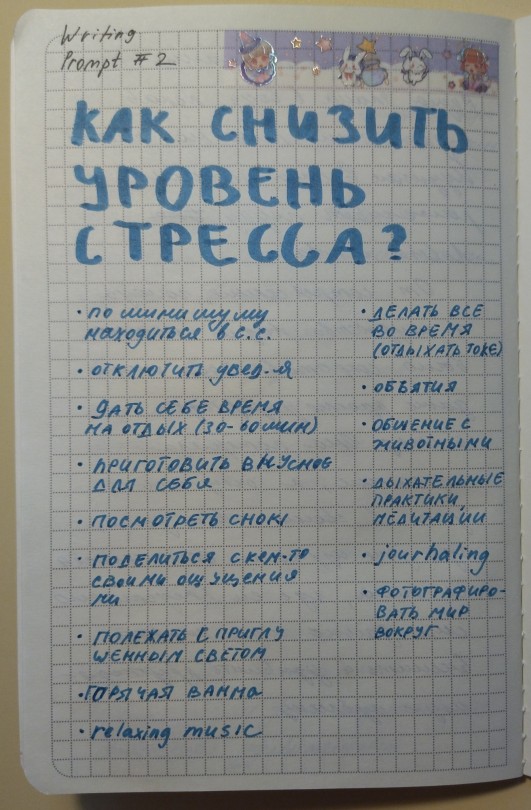 Writing
Prompt #2
КАК СНИЗИТЬ
УРОВЕНЬ
СТРЕССА?
• по минимуму
находиться в с.с.
• отключить увед-я
• дать себе время
на отдых (30-60 мин)
• приготовить вкусное
для себя
• посмотреть
• поделиться с кем-то
своими ощущения
ми
• полежать с приглу
шенным светом
• горячая ванна
• relaxing music
• делать всё
во время
(отдыхать тоже)
• объятия
• общение с
животными
• дыхательные
практики,
медитации
• journaling
• фотографиро-
вать мир
вокруг